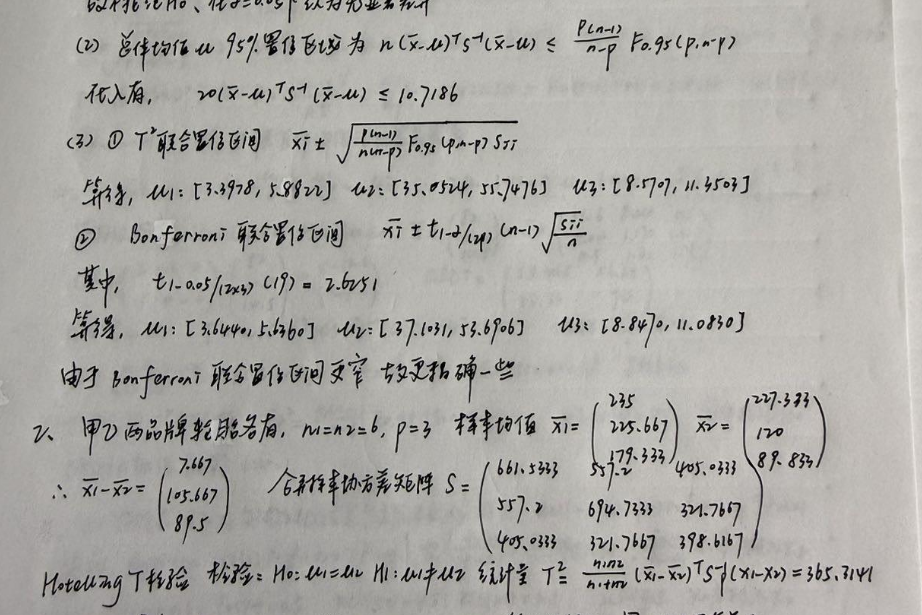 (2) 总体均值 μ 95%置信区域为 n(x̄-μ)ᵀS⁻¹(x̄-μ) ≤ p(n-1)/(n-p) F0.95(p,n-p)
代入有, 20(x̄-μ)ᵀS⁻¹(x̄-μ) ≤ 10.7186
(3) ① T²联合置信区间 x̄i ± √(p(n-1)/(n(n-p)) F0.95(p,n-p) Sii)
算得, μ1: [3.3978, 5.8822] μ2: [35.0524, 55.7476] μ3: [8.5707, 11.3503]
② Bonferroni 联合置信区间 x̄i ± t1-α/(2p) (n-1) √(Sii/n)
其中, t1-0.05/(2×3) (19) = 2.6251
算得, μ1: [3.6440, 5.6360] μ2: [37.1031, 53.6906] μ3: [8.8470, 11.0830]
由于 Bonferroni 联合置信区间更窄 故更精确一些
2、 甲乙两品牌轮胎各有, n1=n2=6, p=3 样本均值 x̄1= (235 225.667 179.333) x̄2= (227.333 120 89.833)
∴ x̄1-x̄2 = (7.667 105.667 89.5) 合并样本协方差矩阵 S = (661.5333 557.2 405.0333
557.2 694.7333 321.7667
405.0333 321.7667 398.6167)
Hotelling T检验 检验: H0: μ1=μ2 H1: μ1≠μ2 统计量 T²= n1n2/(n1+n2) (x̄1-x̄2)ᵀS⁻¹(x̄1-x̄2) = 365.3141